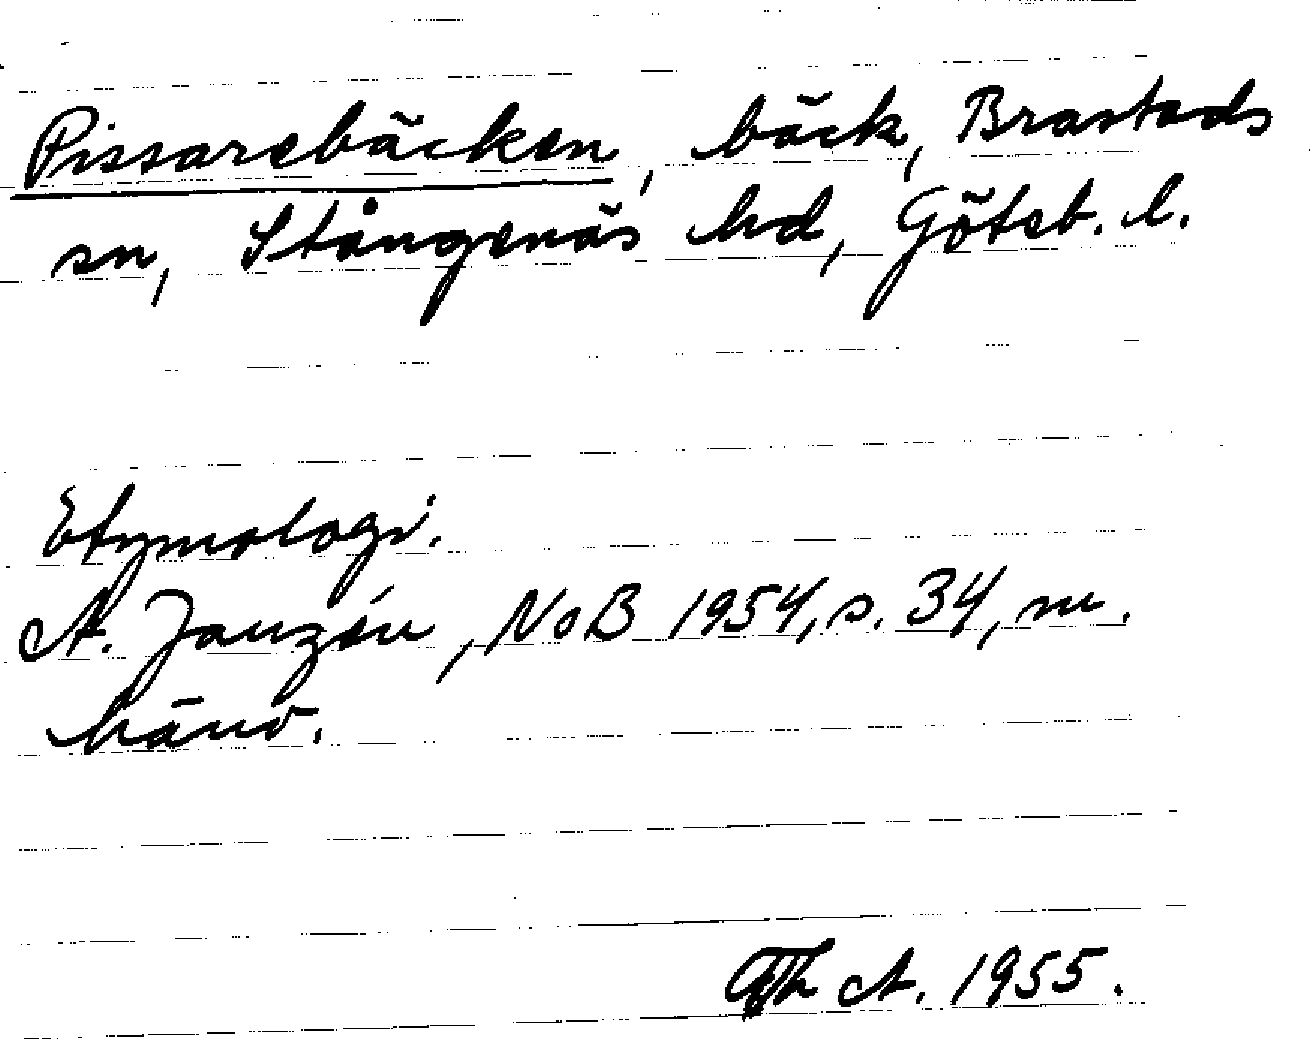 Pissarebäcken, bäck, Brastads
sn, Stångenäs hd, Göteb. l.
Etymologi.
A. Janzén, NoB 1954, s. 34, m.
hänv.
A. 1955.